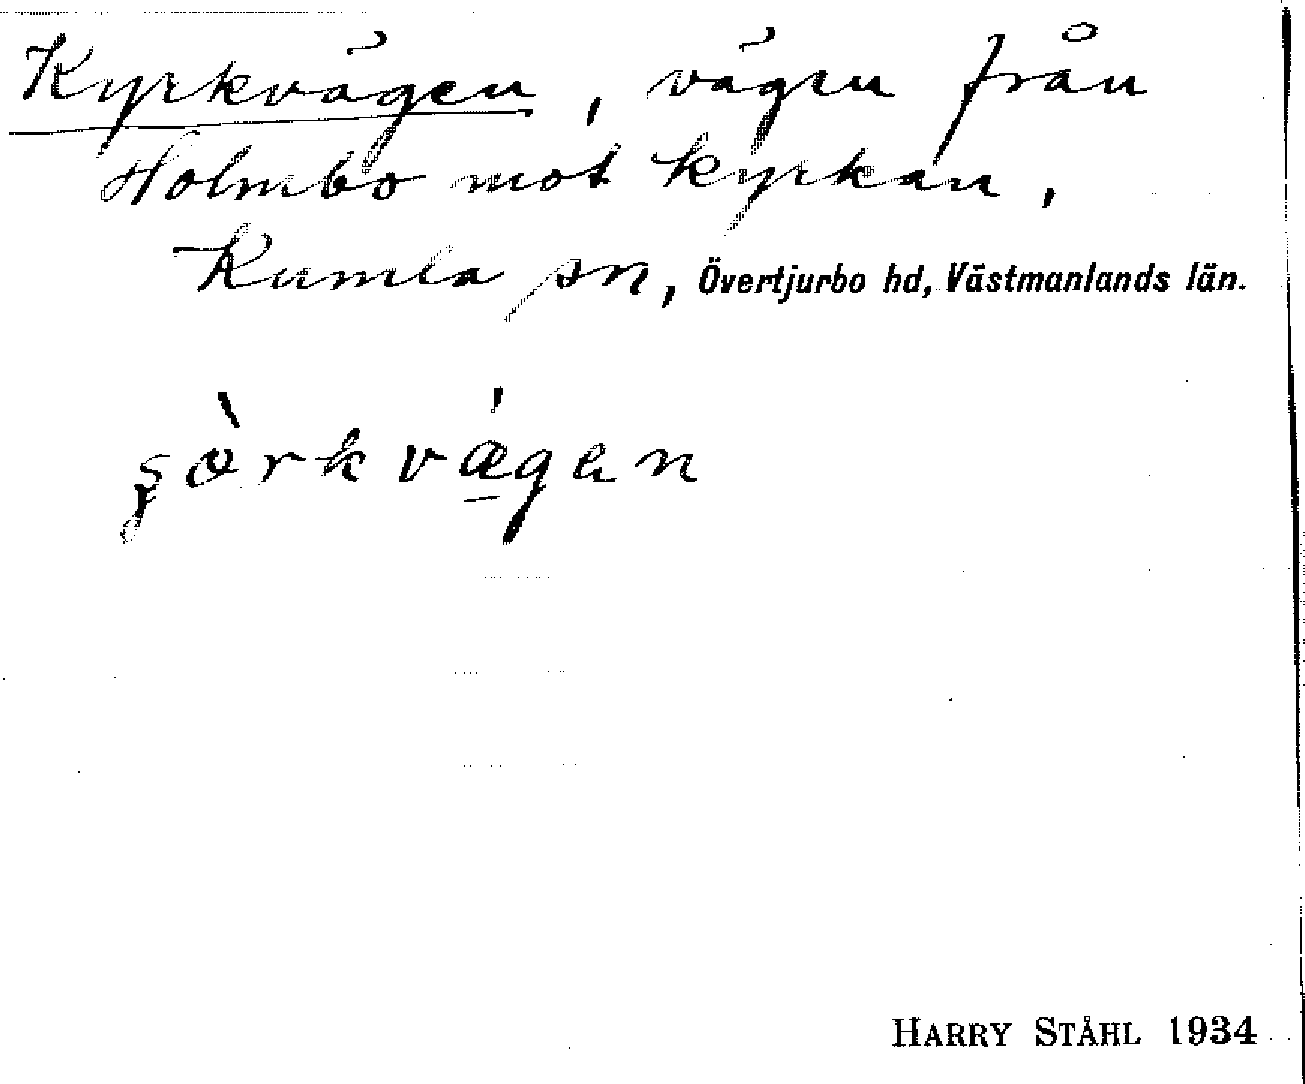 Kyrkvägen, vägen från
Holmbo mot kyrkan,
Kumla sn, Övertjurbo hd, Västmanlands län.
HARRY STÅHL 1934